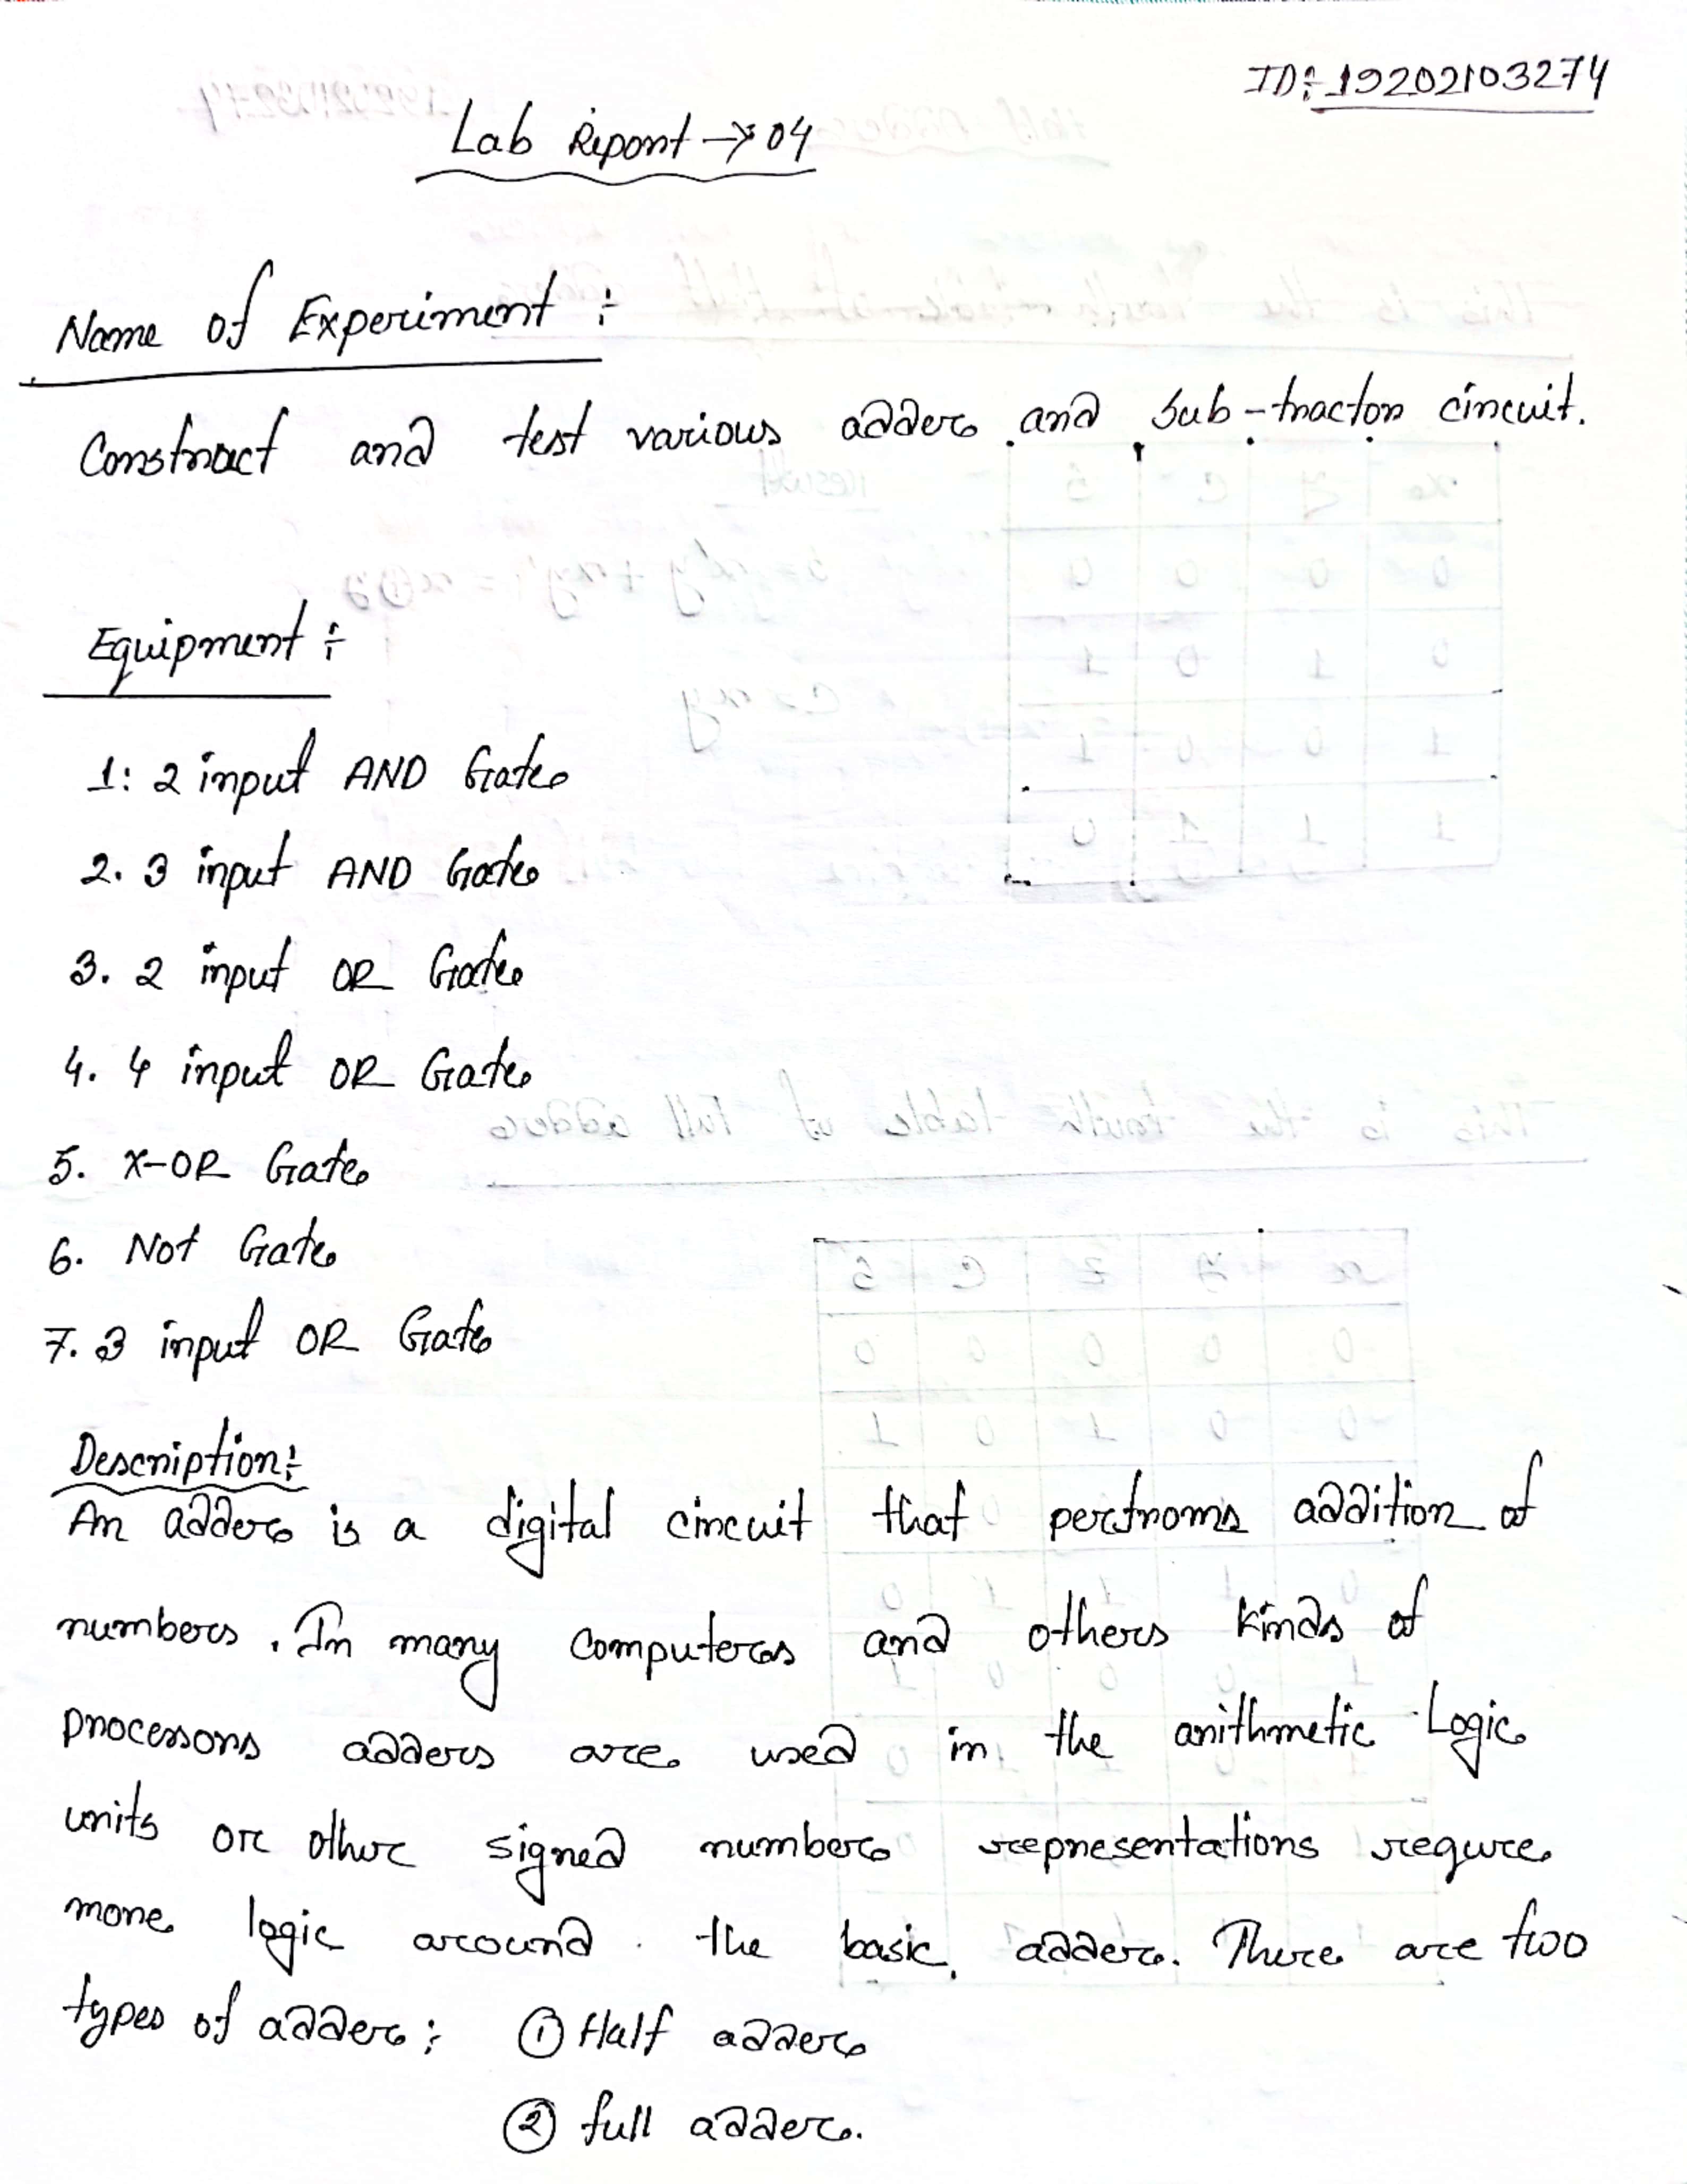 ID: 19202103274
Lab Riport → 04
Name of Experiment :
Construct and test various adder and sub-tractor circuit.
Equipment :
1: 2 input AND Gate
2. 3 input AND Gate
3. 2 input OR Gate
4. 4 input OR Gate
5. X-OR Gate
6. Not Gate
7. 3 input OR Gate
Description:
An adder is a digital circuit that perfroms addition of
numbers. In many computers and others kinds of
processors adders are used in the arithmetic Logic
units or other signed number representations requre
more logic around the basic adder. There are two
types of adder : ① Half adder
② full adder.